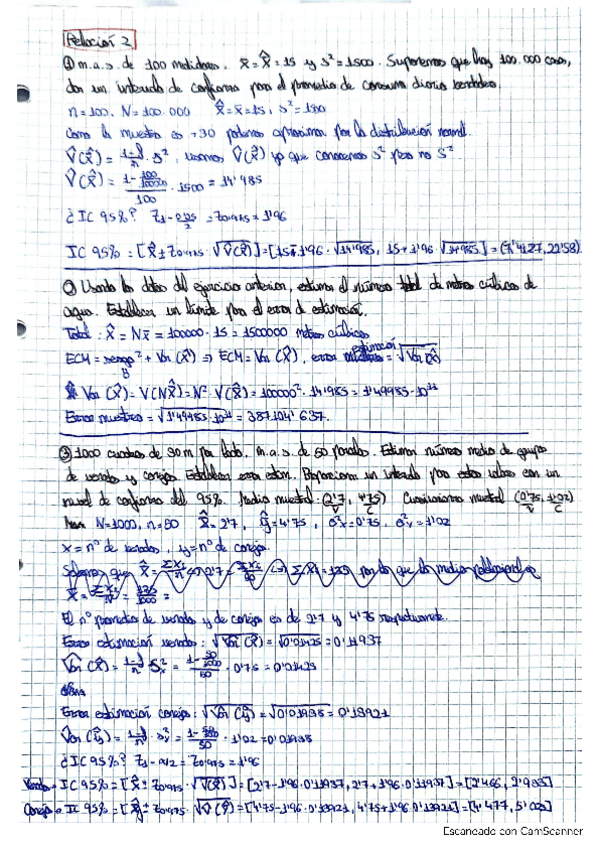 Relación 2
① m.a.s. de 100 medidores. x̄ = X̂ = 15 y s² = 1500. Suponemos que hay 100.000 casas,
dar un intervalo de confianza para el promedio de consumo diario
n = 100. N = 100.000 X̂ = x̄ = 15,
Como la muestra es +30 podemos aproximar por la distribución normal.
V̂(X̂) = 1-f/n · s², usamos V̂(X̂) ya que conocemos s² pero no S².
V̂(X̂) = · 1500 = 14'985
¿IC 95%? = Z0'975 = 1'96
IC 95% = [X̂ ± Z0'975 · √V̂(X̂)] = [15 ± 1'96 · √14'985, 15 + 1'96 · √14'985] = (7'4127, 22'58).
② Usando los datos del ejercicio anterior, estima el número total de metros cúbicos de
agua. Establecer un límite para el error de estimación.
Total: X̂ = Nx̄ = 100000 · 15 = 1500000 metros cúbicos
ECM = sesgo² + Var(X̂) ⇒ ECM = Var(X̂), error estimación = √Var(X̂)
Var(X̂) = V(NX̂) = N² · V(X̂) = 100000² · 14'985 = 1'49985 · 10¹¹
Error muestreo = = 387104'637.
③ 1000 cuadros de 30m por lado. m.a.s. de 50 parcelas. Estimar número medio de grupos
de venados y conejos. Establecer error estim. Proporcionar un intervalo para estos valores con un
nivel de confianza del 95%. Media muestral: (2'7, 4'75) Cuasivarianza muestral (0'75, 1'02)
N = 1000, n = 50 X̂ = 2'7, ŷ = 4'75, = 0'75, = 1'02
x = nº de venados, y = nº de conejos.
El nº promedio de venados y de conejos es de 2'7 y 4'75 respectivamente.
Error estimación venados: √Var(X̂) = √0'01425 = 0'11937
Var(X̂) = 1-f/n · = · 0'75 = 0'01425
Error estimación conejos: √Var(ŷ) = √0'01938 = 0'13921
Var(ŷ) = 1-f/n · = · 1'02 = 0'01938
¿IC 95%? Z1-α/2 = Z0'975 = 1'96
Venados → IC 95% = [X̂ ± Z0'975 · √V(X̂)] = [2'7 - 1'96 · 0'11937, 2'7 + 1'96 · 0'11937] = [2'466, 2'933]
Conejos → IC 95% = [ŷ ± Z0'975 · √V(ŷ)] = [4'75 - 1'96 · 0'13921, 4'75 + 1'96 · 0'13921] = [4'477, 5'023]
Escaneado con CamScanner